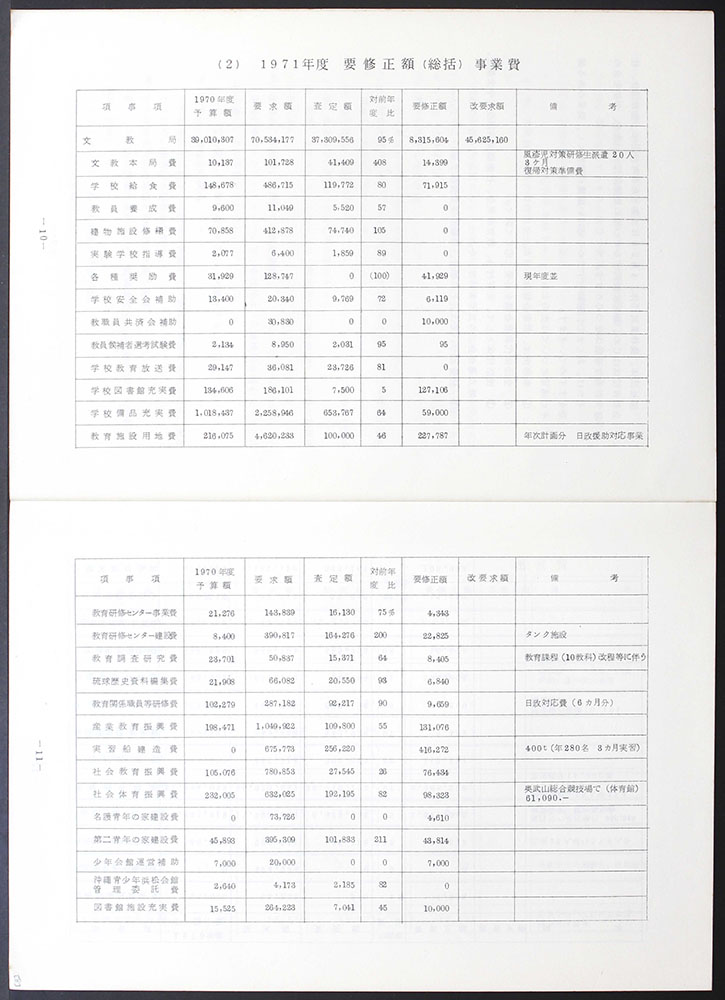 (2) 1971年度 要修正額(総括) 事業費
項 事 項 1970年度予算額 要求額 査定額 対前年度比 要修正額 改要求額 備考
文教局 39,010,307 70,534,177 37,309,556 95% 8,315,604 45,625,160
文教本局費 10,137 101,728 41,409 408 14,399 風疹児対策研修生派遣 20人 3ヶ月 復帰対策準備費
学校給食費 148,678 486,715 119,772 80 71,915
教員養成費 9,600 11,049 5,520 57 0
建物施設修繕費 70,858 412,878 74,740 105 0
実験学校指導費 2,077 6,400 1,859 89 0
各種奨励費 31,929 128,747 0 (100) 41,929 現年度並
学校安全会補助 13,400 20,340 9,769 72 6,119
教職員共済会補助 0 30,830 0 0 10,000
教員候補者選考試験費 2,134 8,950 2,031 95 95
学校教育放送費 29,147 36,081 23,726 81 0
学校図書館充実費 134,606 186,101 7,500 5 127,106
学校備品充実費 1,018,437 2,258,946 653,767 64 59,000
教育施設用地費 216,075 4,620,233 100,000 46 227,787 年次計画分 日政援助対応事業
—10—
項 事 項 1970年度予算額 要求額 査定額 対前年度比 要修正額 改要求額 備考
教育研修センター事業費 21,276 143,839 16,130 75% 4,343
教育研修センター建設費 8,400 390,817 164,276 200 22,825 タンク施設
教育調査研究費 23,701 50,837 15,371 64 8,405 教育課程(10教科)改程等に伴う
琉球歴史資料編集費 21,908 66,082 20,550 93 6,840
教育関係職員等研修費 102,279 287,182 92,217 90 9,659 日政対応費(6カ月分)
産業教育振興費 198,471 1,049,922 109,800 55 131,076
実習船建造費 0 675,773 256,220 416,272 400t(年280名 3カ月実習)
社会教育振興費 105,076 780,853 27,545 26 76,434
社会体育振興費 232,005 632,025 192,195 82 98,323 奥武山総合競技場で(体育館) 61,090.-
名護青年の家建設費 0 73,726 0 0 4,610
第二青年の家建設費 45,893 395,309 101,833 211 43,814
少年会館運営補助 7,000 20,000 0 0 7,000
沖縄青少年浜松会館管理委託費 2,640 4,173 2,185 82 0
図書館施設充実費 15,525 264,223 7,041 45 10,000
—11—